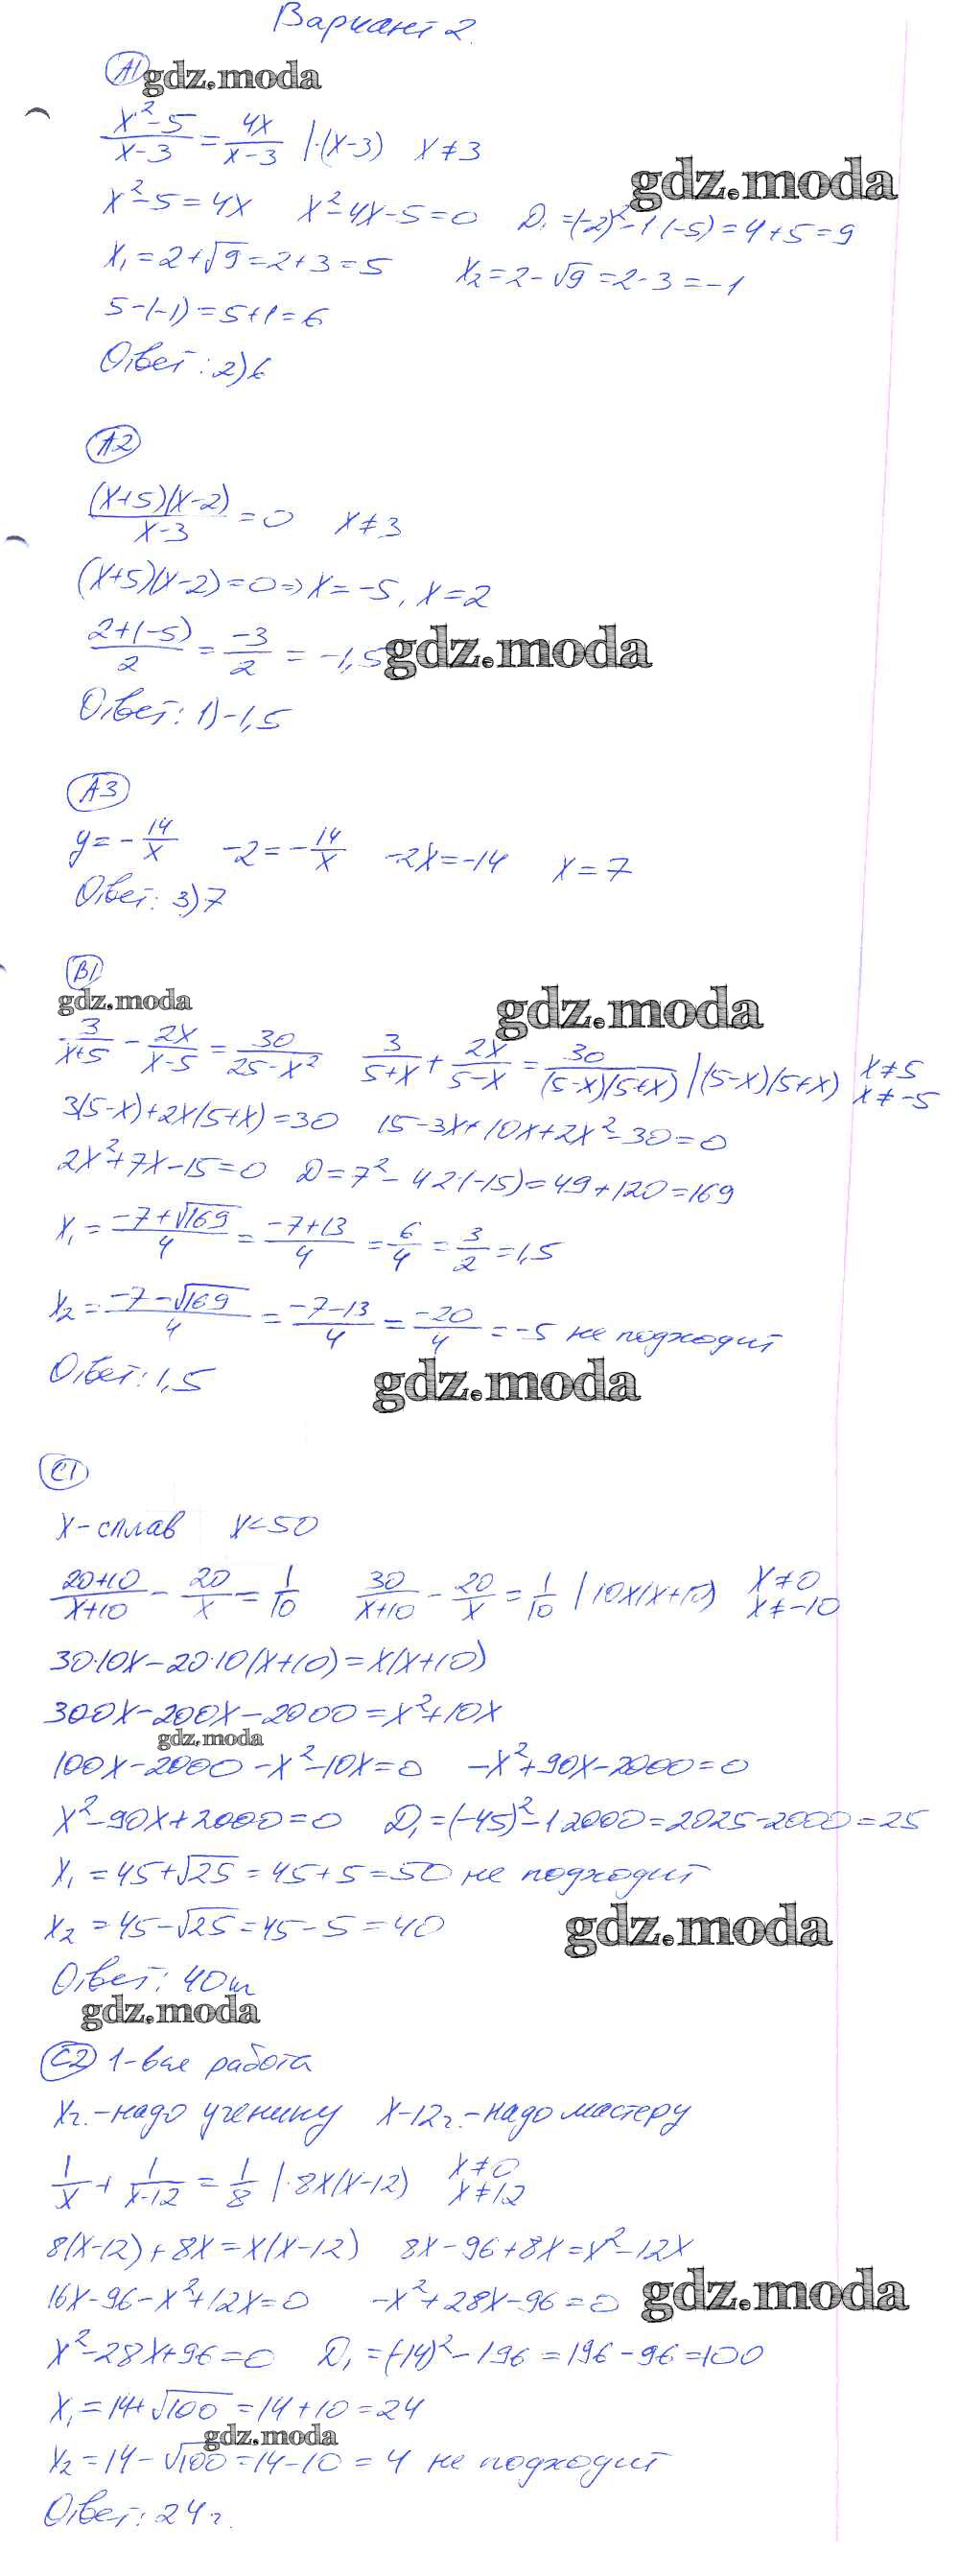 Вариант 2.
А1 gdz.moda
(x²-5)/(x-3) = 4x/(x-3) |·(x-3) x≠3
gdz.moda
x²-5=4x x²-4x-5=0 D₁=(-2)²-1(-5)=4+5=9
x₁=2+√9=2+3=5 x₂=2-√9=2-3=-1
5-(-1)=5+1=6
Ответ: 2)6
А2
((x+5)(x-2))/(x-3) = 0 x≠3
(x+5)(x-2)=0⇒x=-5, x=2
(2+(-5))/2 = -3/2 = -1,5
gdz.moda
Ответ: 1)-1,5
А3
y=-14/x -2=-14/x -2x=-14 x=7
Ответ: 3)7
В1
gdz.moda gdz.moda
3/(x+5) - 2x/(x-5) = 30/(25-x²) 3/(5+x) + 2x/(5-x) = 30/((5-x)(5+x)) |(5-x)(5+x) x≠5 x≠-5
3(5-x)+2x(5+x)=30 15-3x+10x+2x²-30=0
2x²+7x-15=0 D=7²-4·2(-15)=49+120=169
x₁=(-7+√169)/4 = (-7+13)/4 = 6/4 = 3/2 = 1,5
x₂=(-7-√169)/4 = (-7-13)/4 = -20/4 = -5 не подходит
Ответ: 1,5
gdz.moda
С1
x-сплав x<50
(20+10)/(x+10) - 20/x = 1/10 30/(x+10) - 20/x = 1/10 |10x(x+10) x≠0 x≠-10
30·10x-20·10(x+10)=x(x+10)
300x-200x-2000=x²+10x
gdz.moda
100x-2000-x²-10x=0 -x²+90x-2000=0
x²-90x+2000=0 D₁=(-45)²-1·2000=2025-2000=25
x₁=45+√25=45+5=50 не подходит
x₂=45-√25=45-5=40
gdz.moda
Ответ: 40т
gdz.moda
С2 1-вся работа
xч.-надо ученику x-12ч.-надо мастеру
1/x + 1/(x-12) = 1/8 |·8x(x-12) x≠0 x≠12
8(x-12)+8x=x(x-12) 8x-96+8x=x²-12x
16x-96-x²+12x=0 -x²+28x-96=0
gdz.moda
x²-28x+96=0 D₁=(-14)²-1·96=196-96=100
x₁=14+√100=14+10=24
gdz.moda
x₂=14-√100=14-10=4 не подходит
Ответ: 24ч.